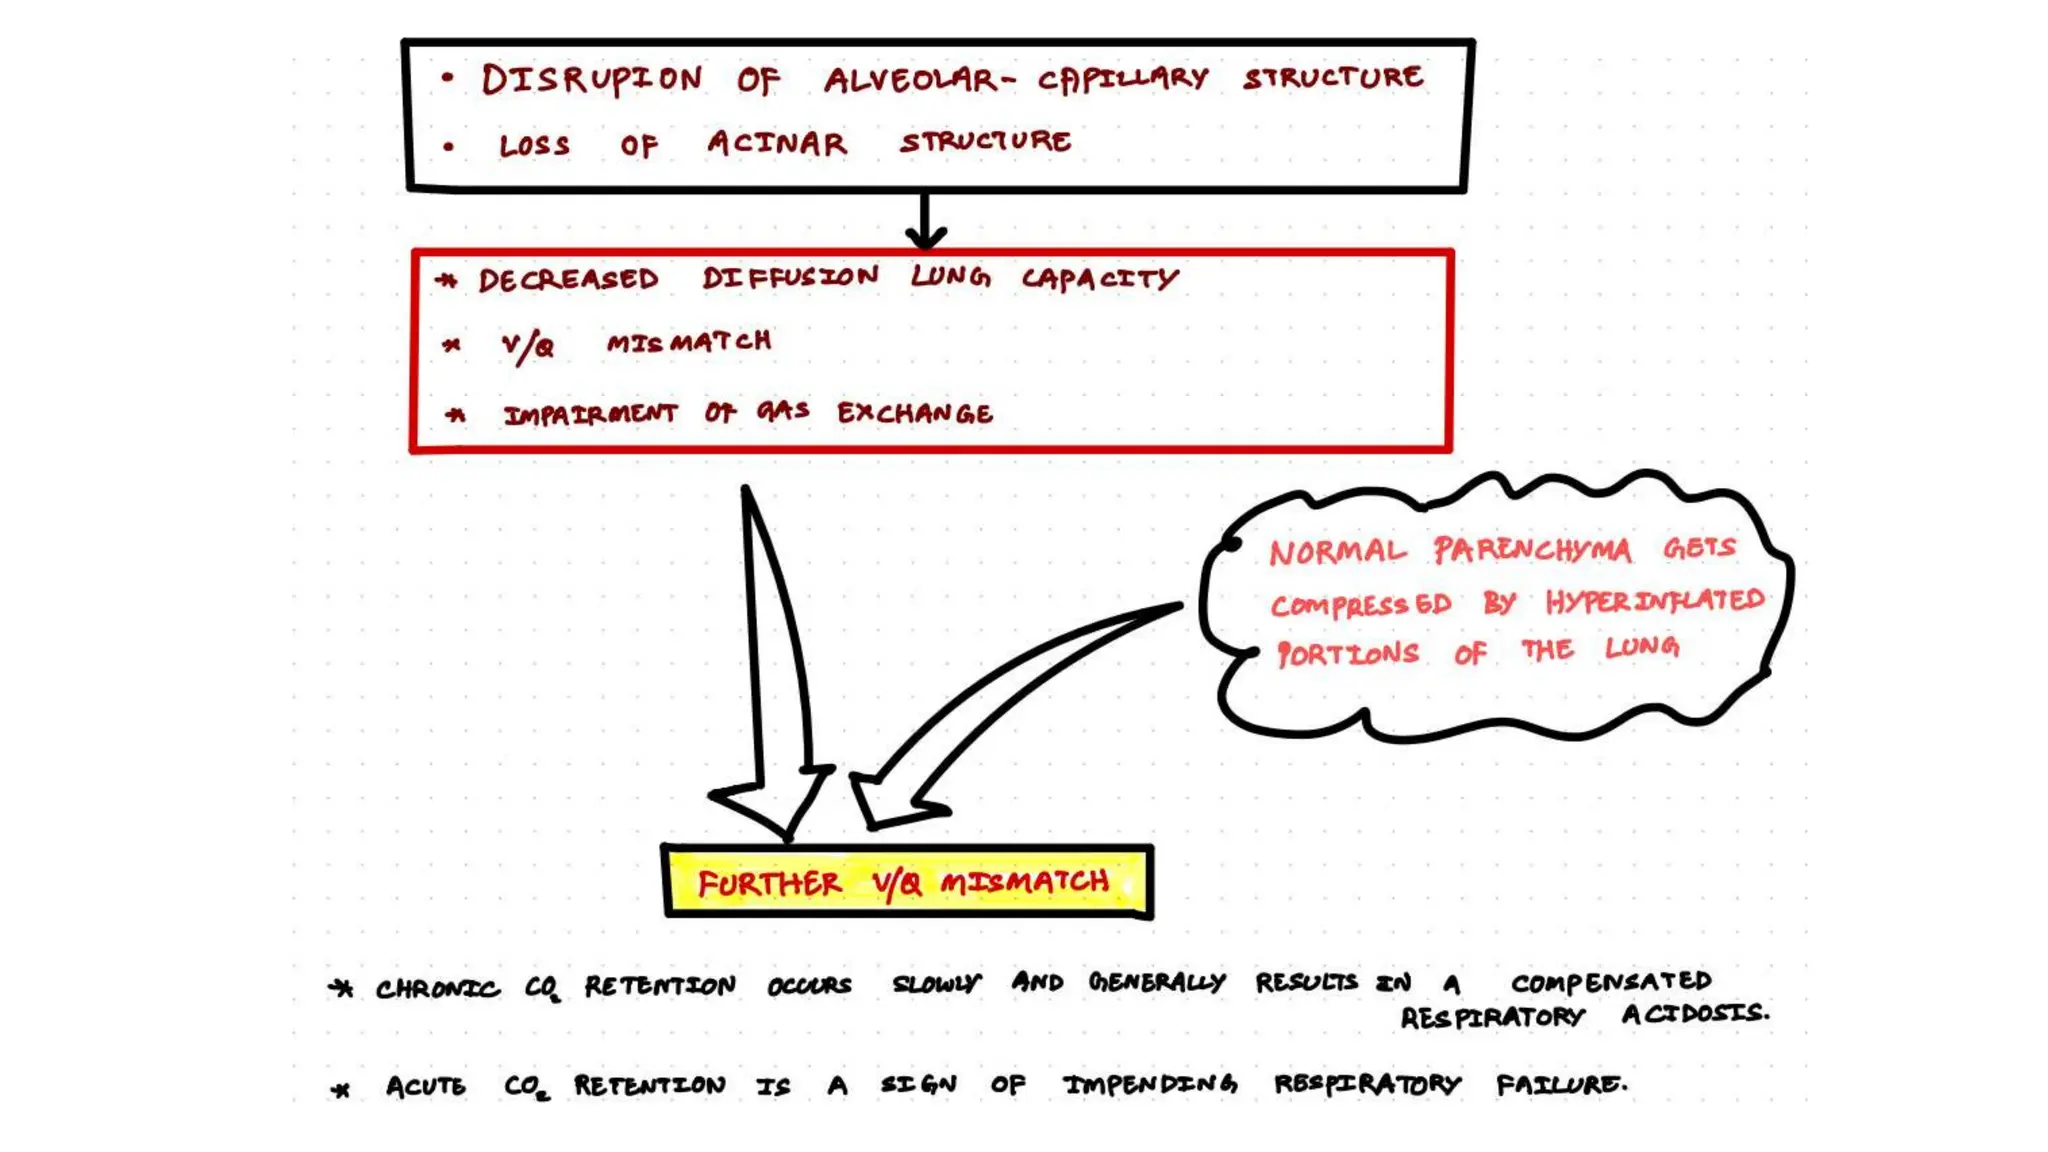 • DISRUPION OF ALVEOLAR- CAPILLARY STRUCTURE
• LOSS OF ACINAR STRUCTURE
* DECREASED DIFFUSION LUNG CAPACITY
* V/Q MISMATCH
* IMPAIRMENT OF GAS EXCHANGE
NORMAL PARENCHYMA GETS
COMPRESSED BY HYPERINFLATED
PORTIONS OF THE LUNG
FURTHER V/Q MISMATCH
* CHRONIC CO₂ RETENTION OCCURS SLOWLY AND GENERALLY RESULTS IN A COMPENSATED
RESPIRATORY ACIDOSIS.
* ACUTE CO₂ RETENTION IS A SIGN OF IMPENDING RESPIRATORY FAILURE.